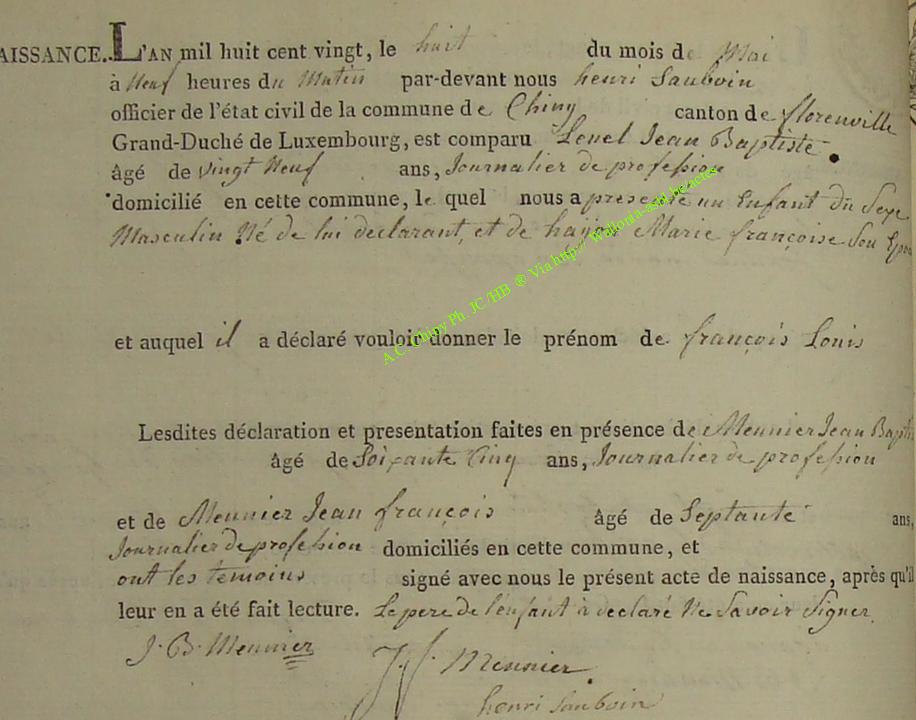 AISSANCE. L'AN mil huit cent vingt, le huit du mois de Mai
à Neuf heures du Matin par-devant nous henri Sauboin
officier de l'état civil de la commune de Chiny canton de florenville
Grand-Duché de Luxembourg, est comparu Lenel Jean Baptiste
âgé de vingt Neuf ans, Journalier de profession
domicilié en cette commune, le quel nous a présenté un Enfant du Sexe
Masculin Né de lui déclarant, et de hayon Marie françoise Son
et auquel il a déclaré vouloir donner le prénom de françois Louis
A.C. Chiny Ph. JC/HB ® Via http://Wallonia-asbl.be/actes
Lesdites déclaration et presentation faites en présence de Meunier Jean Bapti
âgé de Soixante Cinq ans, Journalier de profession
et de Meunier Jean françois âgé de Septante ans,
Journalier de profession domiciliés en cette commune, et
ont les témoins signé avec nous le présent acte de naissance, après qu'il
leur en a été fait lecture. Le pere de l'enfant a declaré Ne Savoir Signer
J. B. Meunier
J. f. Meunier
henri Sauboin